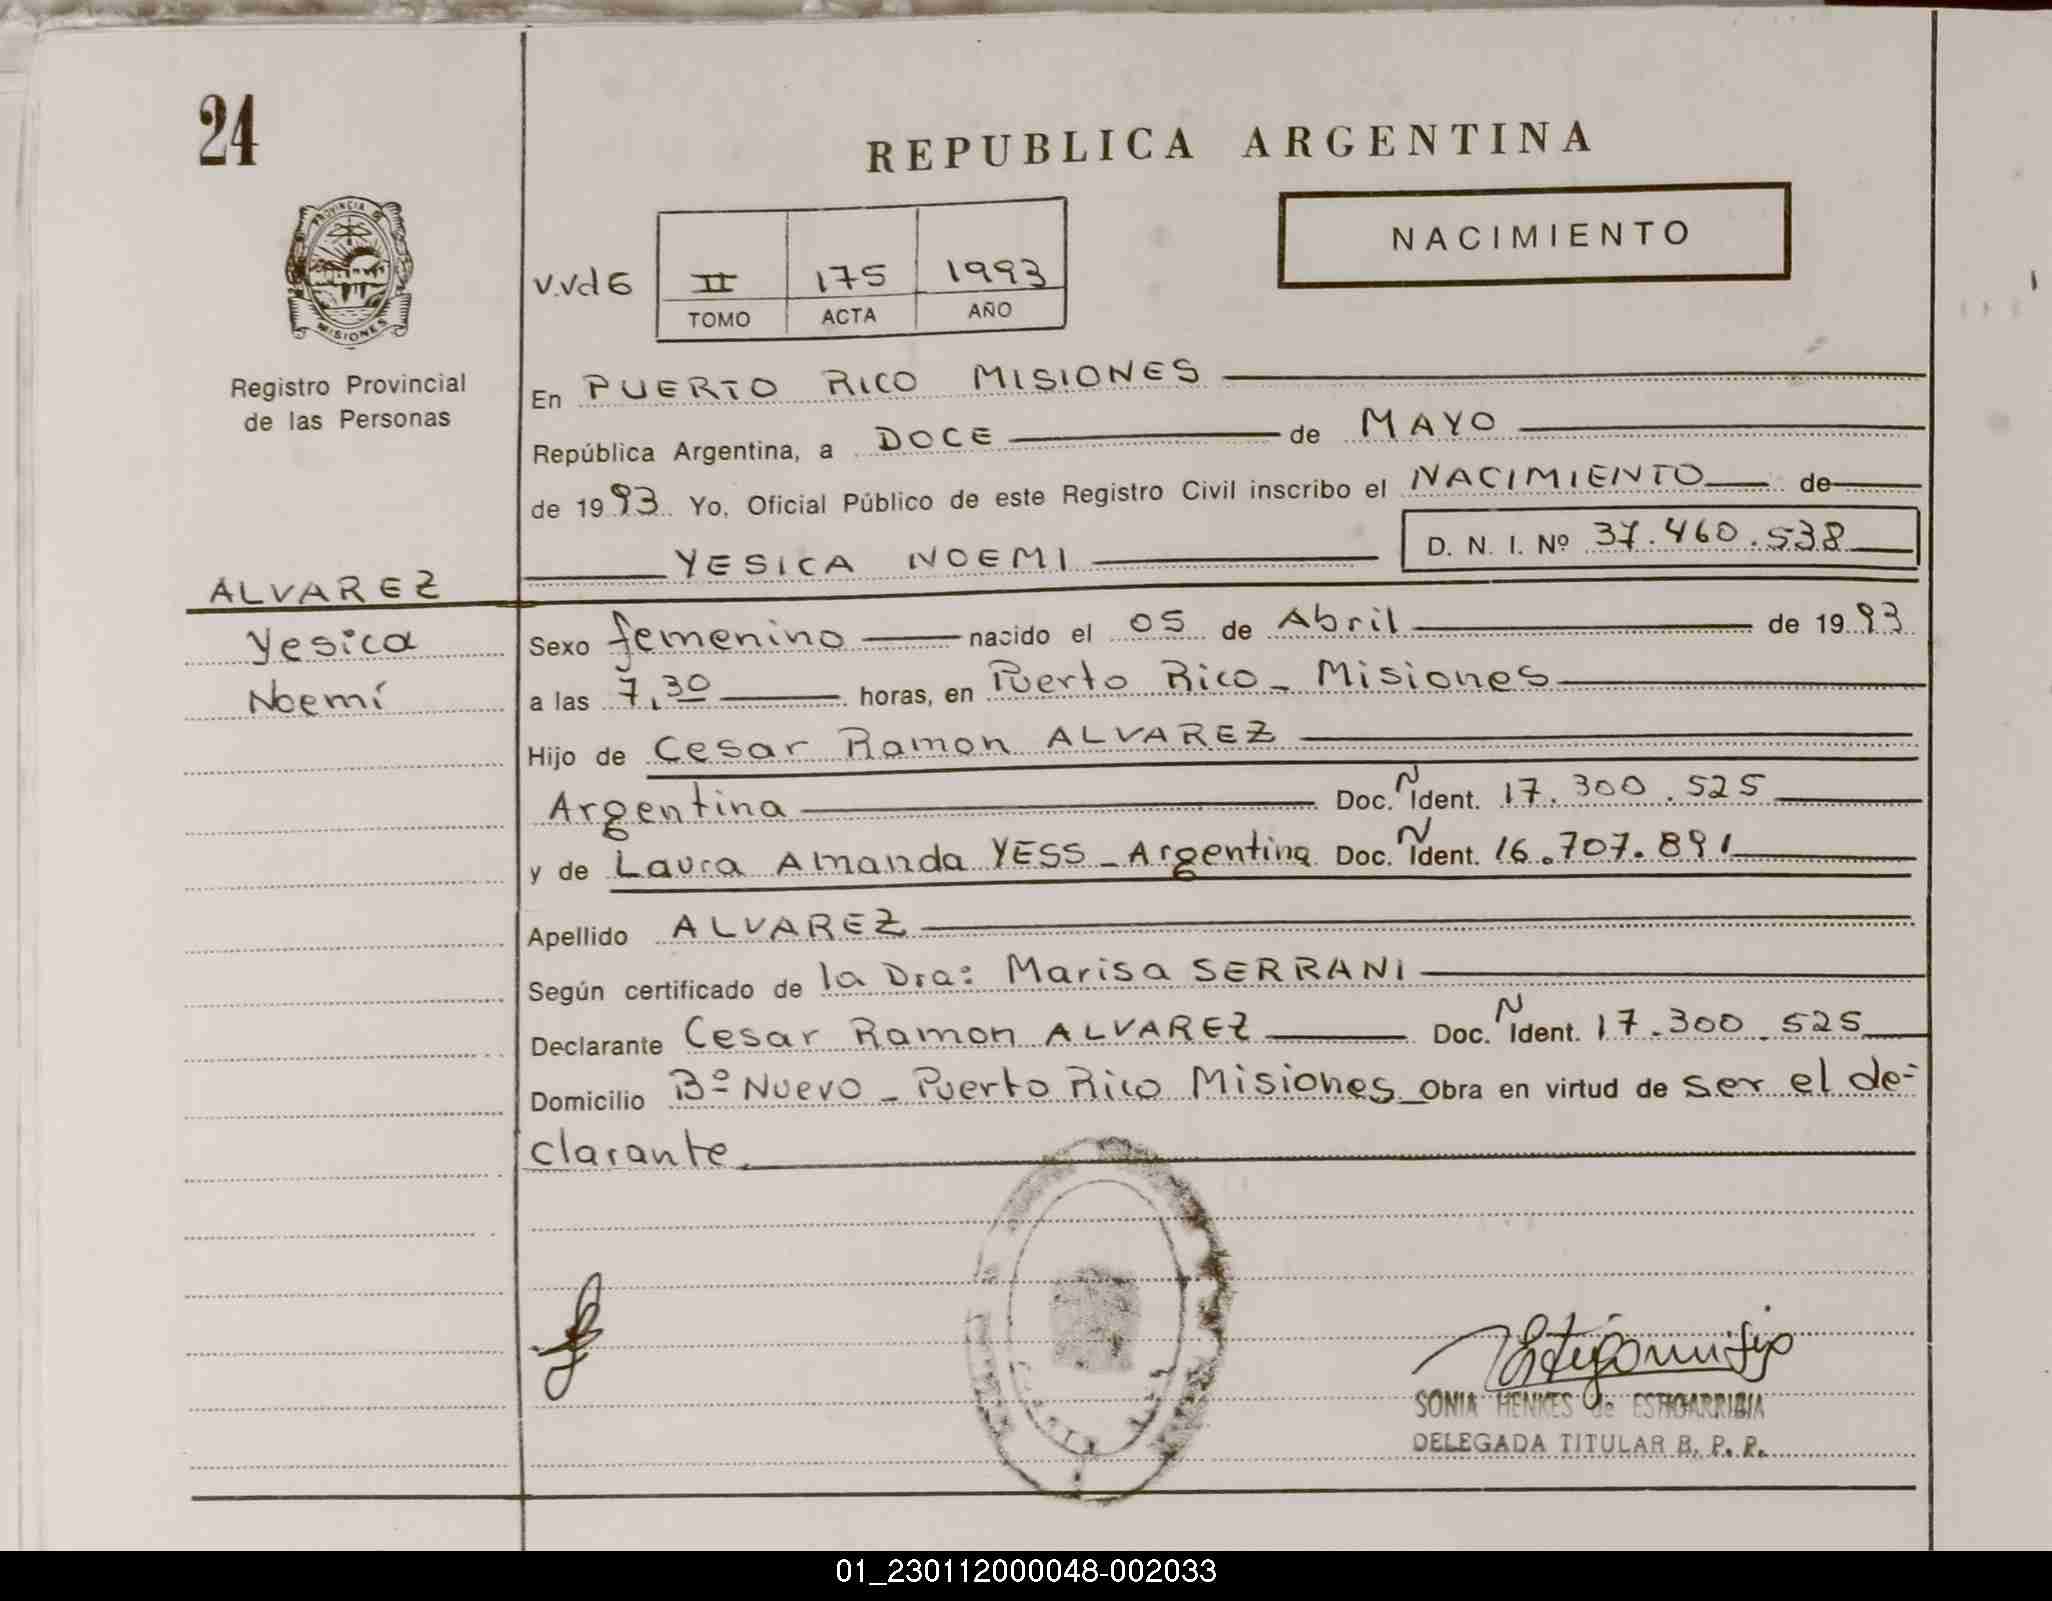 24
REPUBLICA ARGENTINA
NACIMIENTO
PROVINCIA DE
MISIONES
V.Vd6 II 175 1993
TOMO ACTA AÑO
Registro Provincial
de las Personas
En PUERTO RICO MISIONES
República Argentina, a DOCE de MAYO
de 1993 Yo, Oficial Público de este Registro Civil inscribo el NACIMIENTO de
YESICA NOEMI D. N. I. Nº 37.460.538
ALVAREZ
Yesica
Noemí
Sexo femenino nacido el 05 de Abril de 1993
a las 7,30 horas, en Puerto Rico - Misiones
Hijo de Cesar Ramon ALVAREZ
Argentina Doc. Ñ Ident. 17.300.525
y de Laura Amanda YESS - Argentina Doc. Ñ Ident. 16.707.891
Apellido ALVAREZ
Según certificado de la Dra: Marisa SERRANI
Declarante Cesar Ramon ALVAREZ Doc. Ñ Ident. 17.300.525
Domicilio Bº Nuevo - Puerto Rico Misiones Obra en virtud de ser el de-
clarante.
SONIA HENKES de ESTIGARRIBIA
DELEGADA TITULAR R. P. P.
01_230112000048-002033